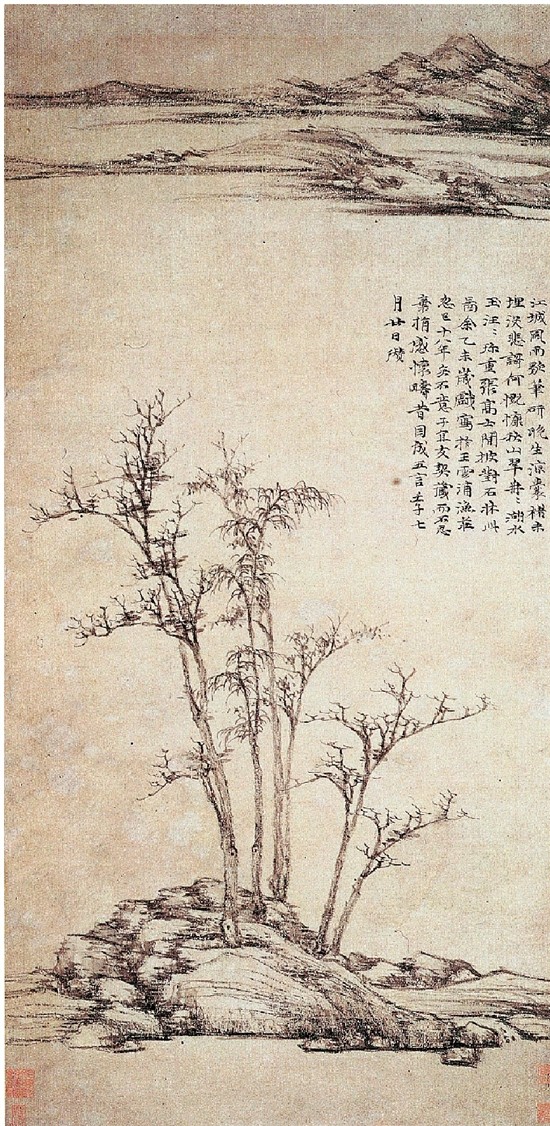 江城風雨歇筆研晚生凉囊楮未
埋没悲謌何慨慷秋山翠冉〻湖水
玉汪〻珍重張高士閒披對石牀此
啚余乙未歲戲寫於王雲浦漁莊
忽已十八年矣不意子宜友契藏而不忍
棄捐感懷疇昔因成五言壬子七
月廿日瓚